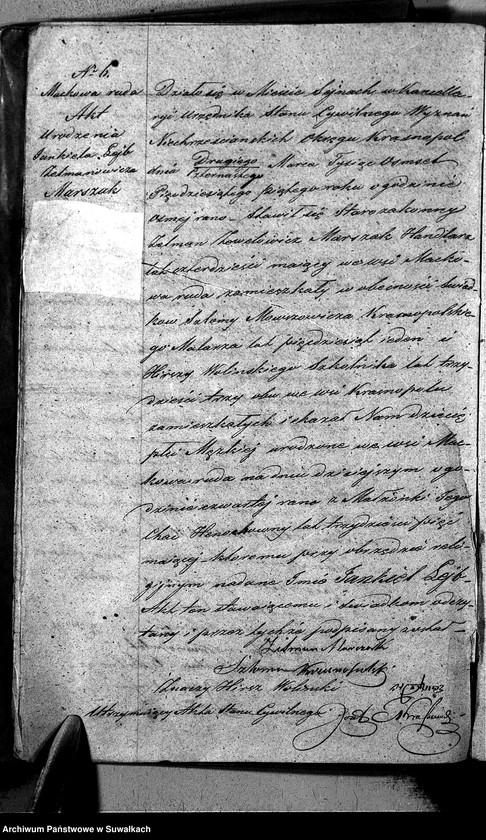 Nr 6.
Maćkowa ruda
Akt
Urodzenia
Jankiela Lejb
Zelmanowicza
Marszak
Działo się w Mieście Sejnach w Kancella-
ryi Urzędnika Stanu Cywilnego Wyznań
Niechrześciańskich Okręgu Krasnopol
dnia Drugiego Czternastego Marca Tysiąc Ośmset
Pięćdziesiątego piątego roku o godzinie
osmej rano. Stawił się Starozakonny
Zelman Marszak Handlarz
lat czterdzieści mający we wsi Maćko-
wa ruda zamieszkały w obecności świad-
ków Szlomy Mowszowicza Krasnopolskie-
go Malarza lat pięćdziesiąt ieden i
Hirszy Wolińskiego Szkolnika lat trzy-
dzieści trzy obu we wsi Krasnopolu
zamieszkałych i okazał Nam dziecię
płci Męzkiej urodzone we wsi Mać-
kowa ruda na dniu dzisiejszym o go-
dzinie czwartej rano z Małżonki Jego
Chai lat trzydzieści pięć
mającej któremu przy obrzędzie reli-
gijnym nadane Imie Jankiel Lejb.
Akt ten stawaiącemu i świadkom odczy-
tany i przez tychże podpisany został
Zelman Marszak
Szloma Krasnopolski
Znaczy Hirsz Woliński
Utrzymujący Akta Stanu Cywilnego
Archiwum Państwowe w Suwałkach